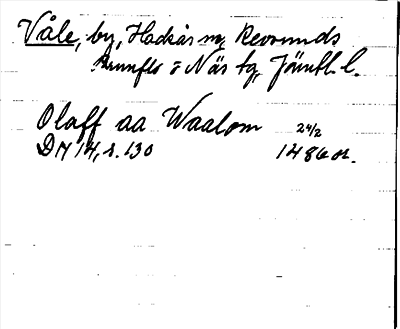 Våle, by, Hackås sn, Revsunds
Brunflo o Näs tg, Jämtl. l.
Olaff aa Waalom 24/2
DN 14, s. 130 1486 or.